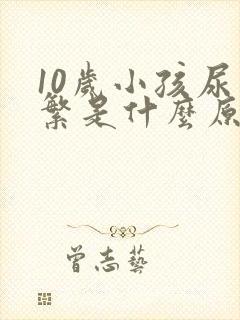 10歲小孩尿
繁是什麼原
曾志藝